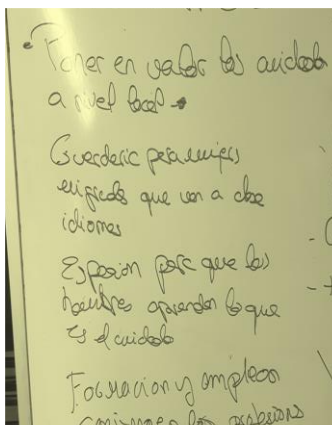 Poner en valor los cuidados
a nivel local
Guardería para mujeres
migradas que van a clase
idiomas
Espacios para que los
hombres aprendan lo que
es el cuidado
Formación y empleos